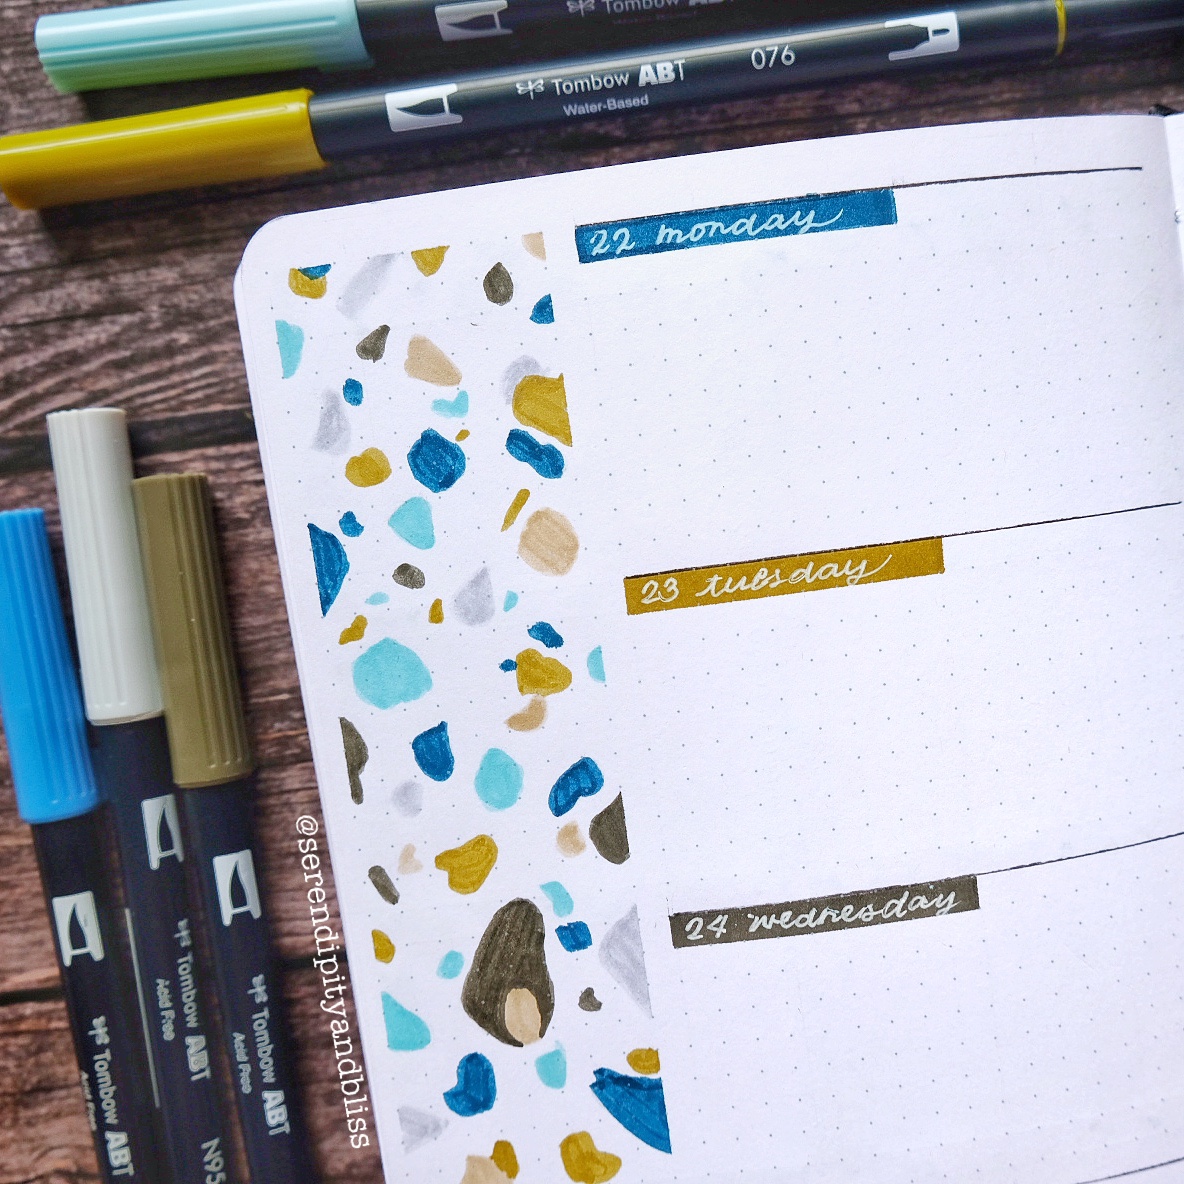 Tombow
Tombow ABT 076
Water-Based
22 monday
23 tuesday
24 wednesday
@serendipityandbliss
Tombow ABT
Acid Free
N95
Tombow ABT
Acid Free
Tombow ABT
Acid Free